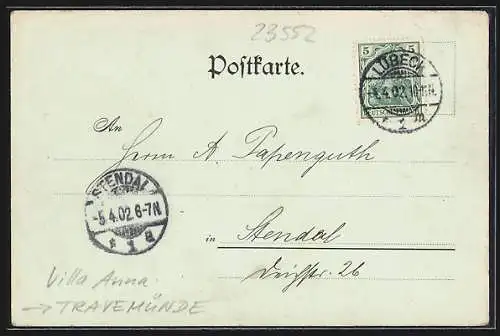 23552
5 5
Postkarte.
LÜBECK
5.4.02.10-11N.
1
An
Herrn A. Papenguth
STENDAL
-5.4.02.6-7N
* 1 a
in Stendal
26
Villa Anna
→ TRAVEMÜNDE